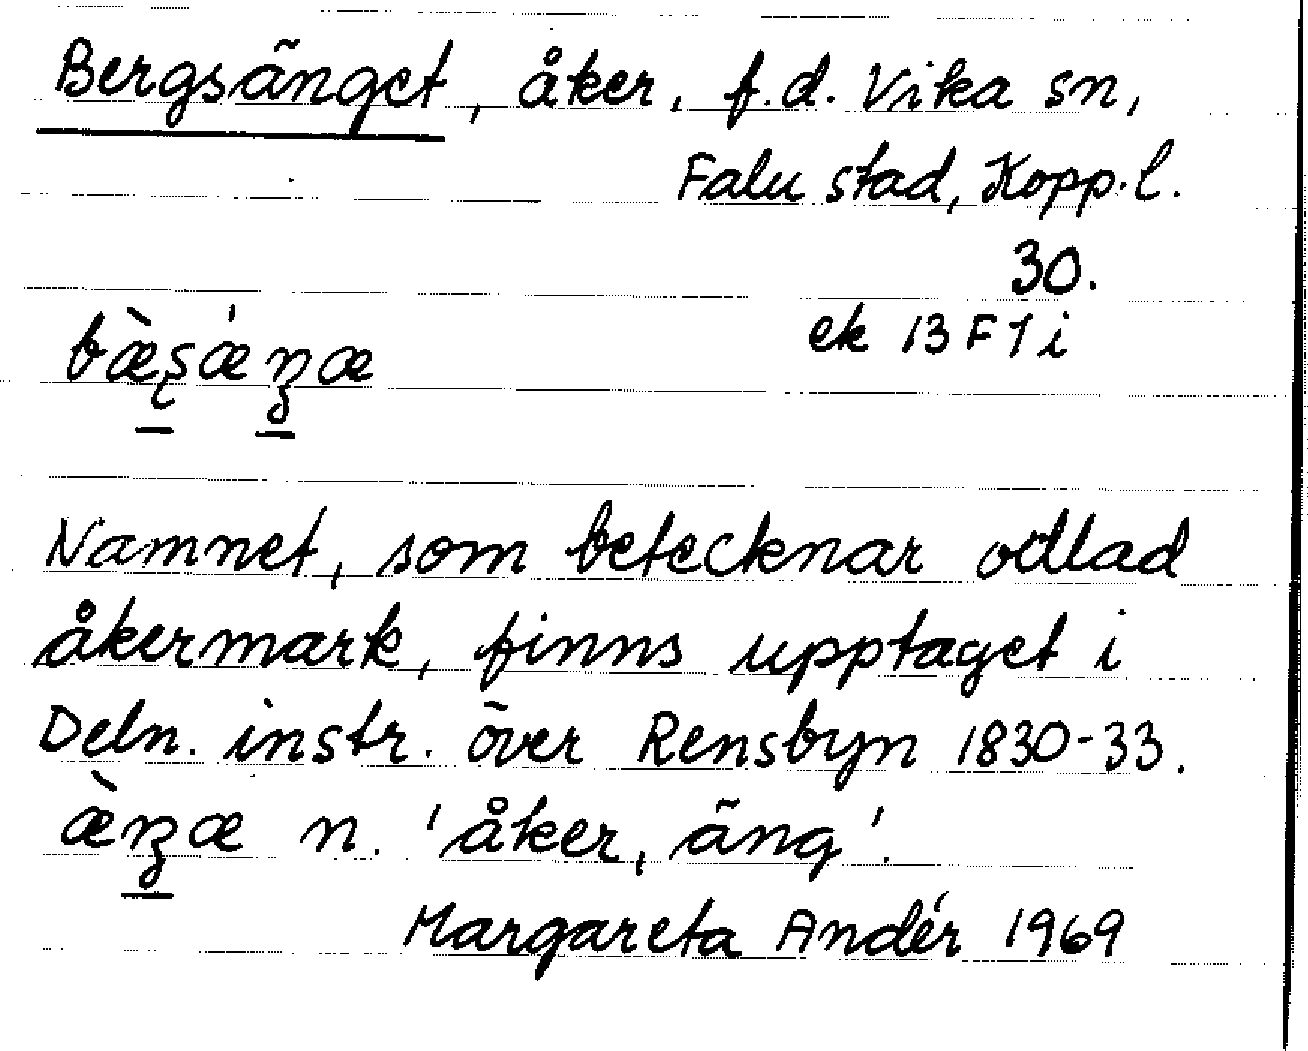 Bergsänget, åker, f.d. Vika sn,
Falu stad, Kopp.l.
30.
ek 13 F 7 i
bæ̀ʂǽŋæ
Namnet, som betecknar odlad
åkermark, finns upptaget i
Deln. instr. över Rensbyn 1830-33.
æ̀ŋæ n. 'åker, äng'.
Margareta Andér 1969